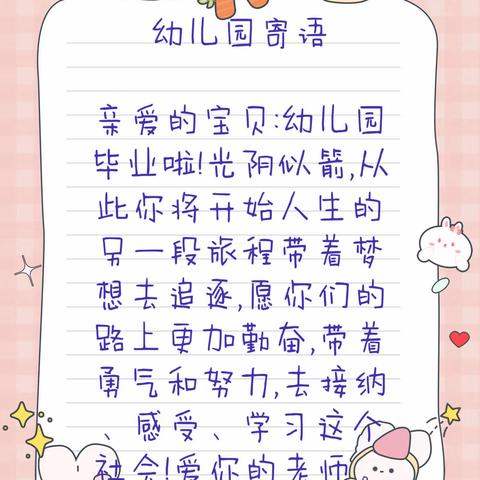 幼儿园寄语
亲爱的宝贝:幼儿园
毕业啦!光阴似箭,从
此你将开始人生的
另一段旅程带着梦
想去追逐,愿你们的
路上更加勤奋,带着
勇气和努力,去接纳
、感受、学习这个
社会!爱你的老师